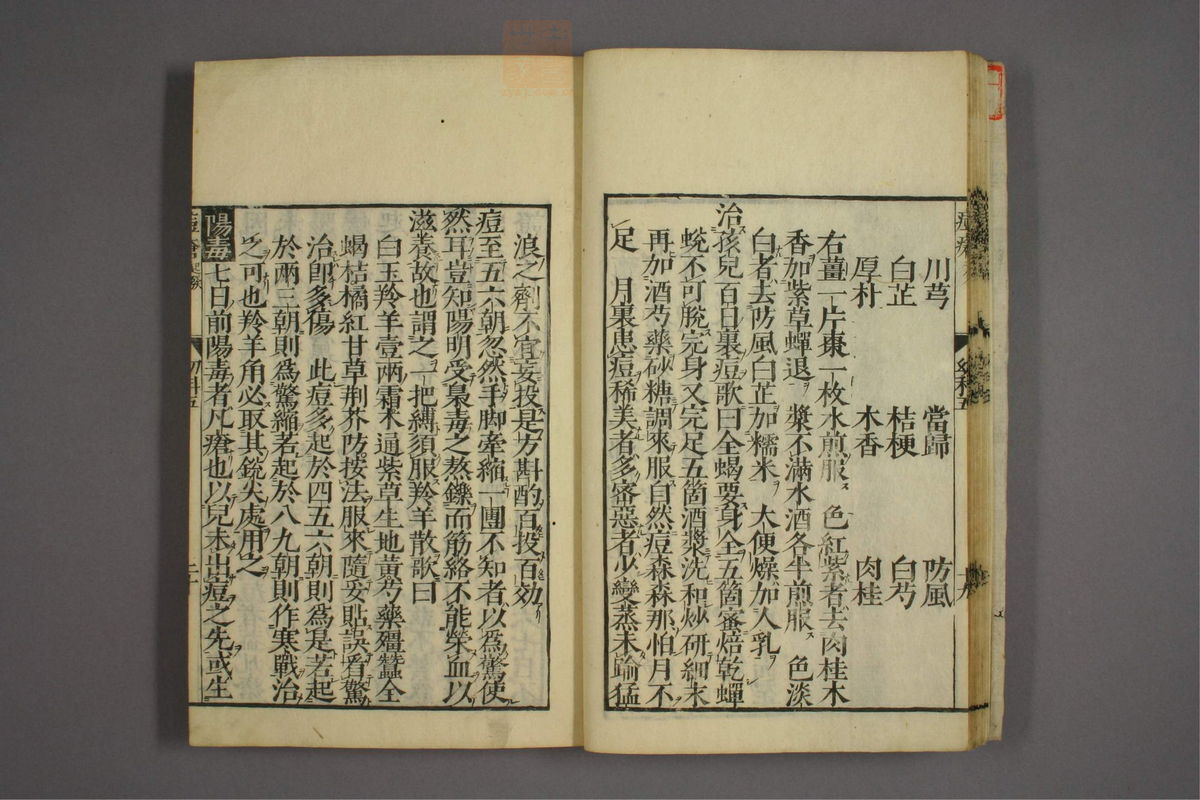 川芎　當歸　防風
白芷　桔梗　白芍
厚朴　木香　肉桂
右薑一片棗一枚水煎服　色紅紫者去肉桂木
香加紫草蟬退　漿不滿水酒各半煎服　色淡
白者去防風白芷加糯米　大便燥加人乳
治孩兒百日裏痘歌曰全蝎要身全五箇蜜焙乾蟬
蛻不可脫完身又完足五箇酒漿洗和炒研細末
再加酒芍藥砂糖調來服自然痘森森那怕月不
足　月裏患痘稀美者多密惡者少變蒸未踰猛
浪之劑不宜妄投是方斟酌百投百効
痘至五六朝忽然手脚牽縮一團不知者以爲驚使
然耳豈知陽明受梟毒之熬鑠而筋絡不能榮血以
滋養故也謂之一把縛須服羚羊散歌曰
白玉羚羊壹兩霜木通紫草生地黃芍藥殭蠶全
蝎桔橘紅甘草荆芥防按法服來隨妥貼誤看驚
治卽多傷　此痘多起於四五六朝則爲是若起
於兩三朝則爲驚縮若起於八九朝則作寒戰治
之可也羚羊角必取其銳尖處用之
陽毒七日前陽毒者凡瘡也以兒未出痘之先或生